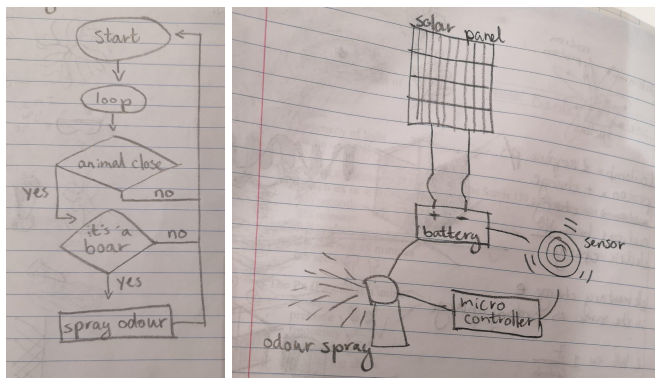 start
loop
animal close
yes
no
it's a
boar
no
yes
spray odour
solar panel
+ -
battery
sensor
micro
controller
odour spray